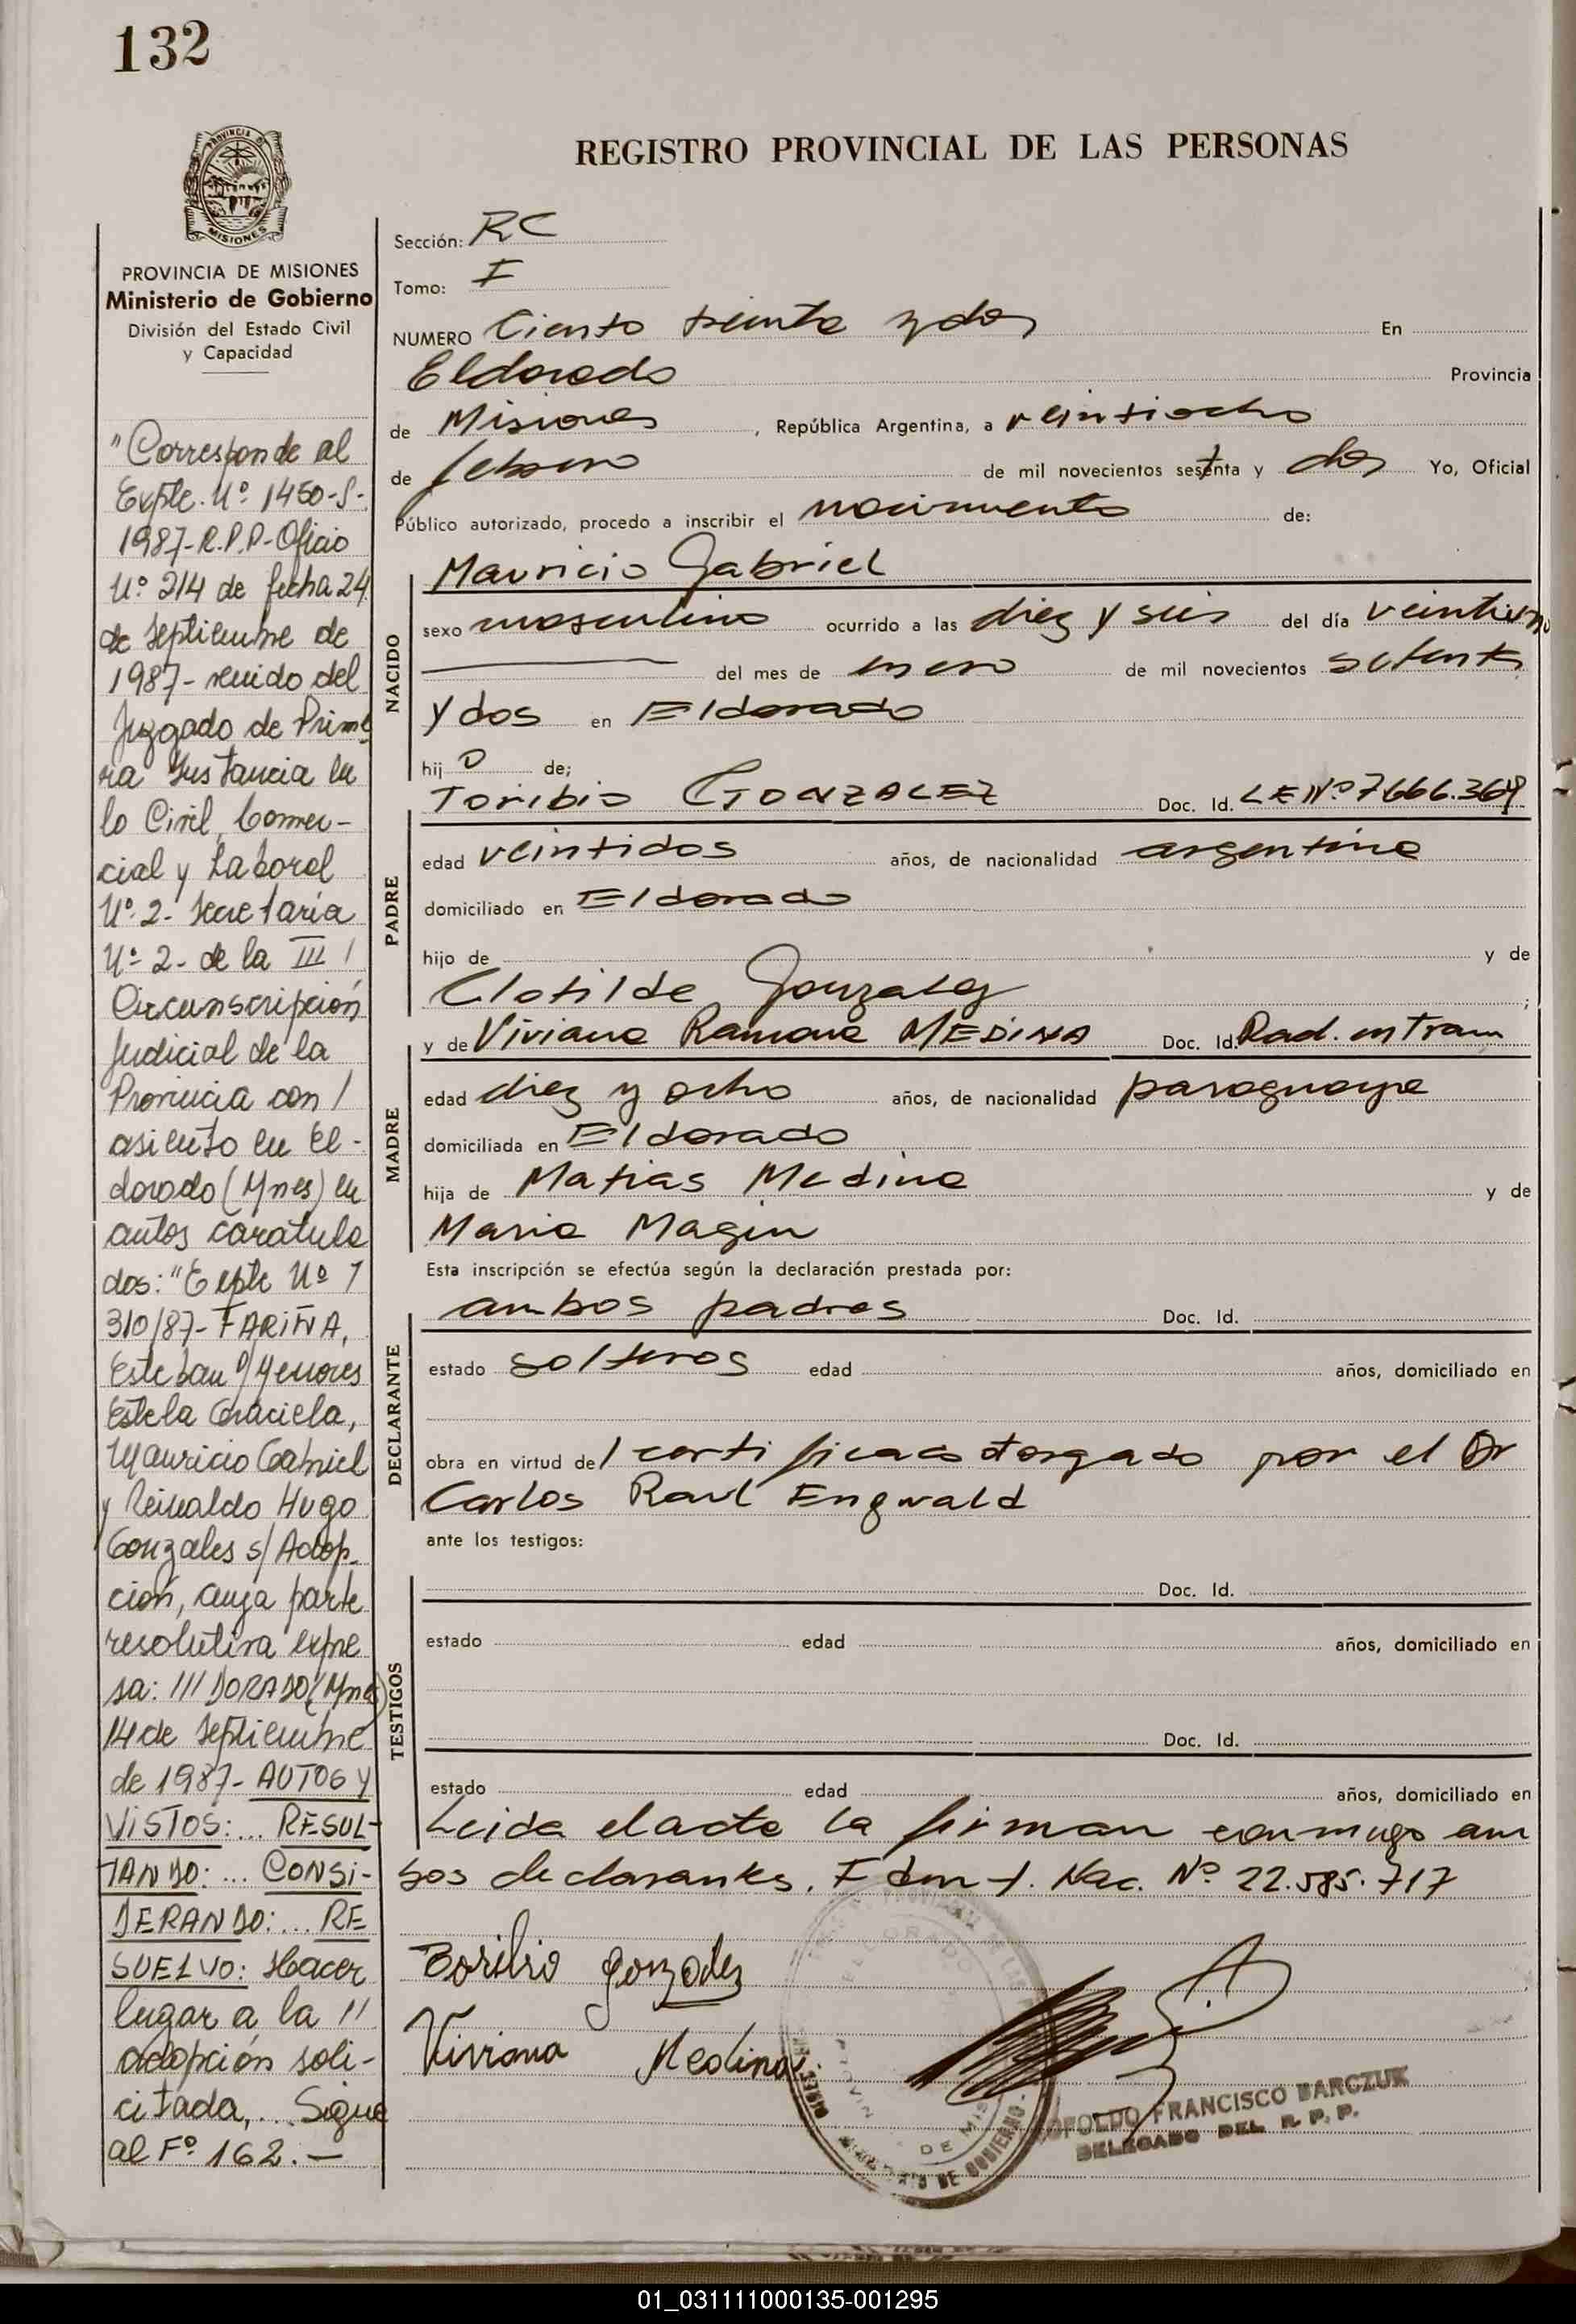 132
PROVINCIA DE
MISIONES
PROVINCIA DE MISIONES
Ministerio de Gobierno
División del Estado Civil
y Capacidad
"Corresponde al
Expte. Nº 1450-S-
1987-R.P.P-Oficio
Nº 214 de fecha 24
de Septiembre de
1987- venido del
Juzgado de Prime
ra Instancia en
lo Civil, Comer-
cial y Laboral
Nº 2- Secretaría
Nº 2- de la III /
Circunscripción
Judicial de la
Provincia con /
asiento en El-
dorado (Mnes) en
autos caratula
dos: "Expte Nº /
310/87- FARIÑA,
Esteban s/ Menores
Estela Graciela,
Mauricio Gabriel
y Reinaldo Hugo
Gonzales s/ Adop-
ción, cuya parte
resolutiva expre
sa: ///DORADO (Mnes)
14 de Septiembre
de 1987- AUTOS Y
VISTOS: ... RESUL-
TANDO: ... CONSI-
DERANDO: ... RE
SUELVO: Hacer
lugar a la //
adopción soli-
citada, ... Sigue
al Fº 162. —
REGISTRO PROVINCIAL DE LAS PERSONAS
Sección: RC
Tomo: I
NUMERO Ciento treinta y dos En
Eldorado Provincia
de Misiones, República Argentina, a veintiocho
de febrero de mil novecientos setenta y dos Yo, Oficial
Público autorizado, procedo a inscribir el nacimiento de:
NACIDO
Mauricio Gabriel
sexo masculino ocurrido a las diez y seis del día veintiuno
del mes de enero de mil novecientos setenta
y dos en Eldorado
hij o de;
PADRE
Toribio GONZALEZ Doc. Id. LE Nº 7.666.369
edad veintidos años, de nacionalidad argentina
domiciliado en Eldorado
hijo de y de
Clotilde Gonzalez ;
MADRE
y de Viviana Ramona MEDINA Doc. Id. Rad. en Tram
edad diez y ocho años, de nacionalidad paraguaya
domiciliada en Eldorado
hija de Matias Medina y de
Maria Magin
Esta inscripción se efectúa según la declaración prestada por:
DECLARANTE
ambos padres Doc. Id.
estado solteros edad años, domiciliado en
obra en virtud de/ certificado otorgado por el Dr
Carlos Raul Engwald
ante los testigos:
TESTIGOS
Doc. Id.
estado edad años, domiciliado en
Doc. Id.
estado edad años, domiciliado en
Leida el acta la firman conmigo am
bos declarantes. Nac. Nº 22.585.717
gonzalez
Viviana Medina
ELDORADO
DE GOBIERNO
FRANCISCO BARCZUK
DELEGADO DEL R. P. P.
01_031111000135-001295